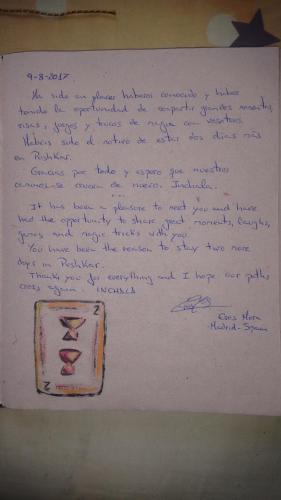 9-8-2017.
Ha sido un placer haberos conocido y haber
tenido la oportunidad de compartir grandes momentos,
risas, juegos y trucos de magia con vosotros.
Habeis sido el motivo de estar dos días más
en Pushkar.
Gracias por todo y espero que nuestros
caminos se crucen de nuevo. Inchala.
It has been a pleasure to meet you and have
had the opportunity to share good moments, laughs,
games and magic tricks with you.
You have been the reason to stay two more
days in Pushkar.
Thank you for everything and I hope our paths
cross again. INCHALA
2
2
Mora
Madrid-Spain